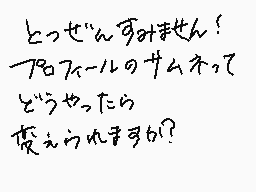 とつぜんすみません!
プロフィールのサムネって
どうやったら
変えられますか!?